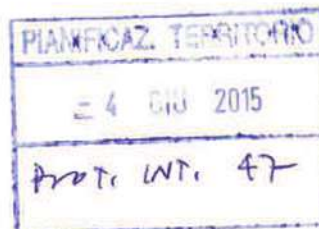 PIANIFICAZ. TERRITORIO
- 4 GIU 2015
PROT. INT. 47